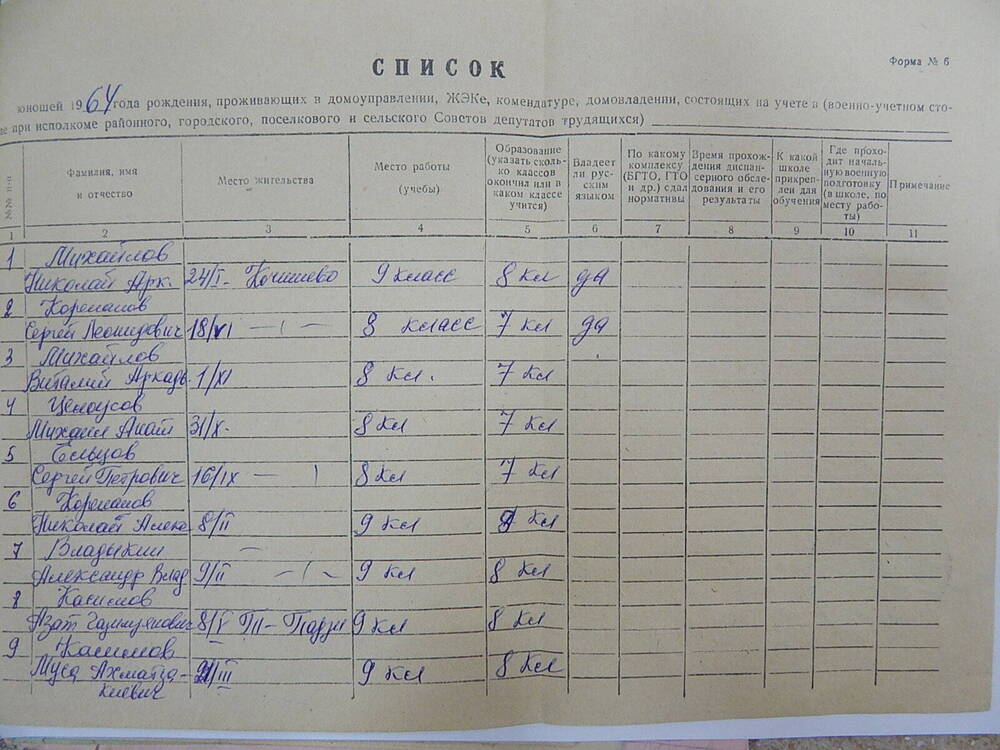 СПИСОК
Форма № 6
юношей 1964 года рождения, проживающих в домоуправлении, ЖЭКе, комендатуре, домовладении, состоящих на учете в (военно-учетном сто-
ле при исполкоме районного, городского, поселкового и сельского Советов депутатов трудящихся)
№№ п-п
Фамилия, имя и отчество
Место жительства
Место работы (учебы)
Образование (указать сколько классов окончил или в каком классе учится)
Владеет ли русским языком
По какому комплексу (БГТО, ГТО и др.) сдал нормативы
Время прохождения диспансерного обследования и его результаты
К какой школе прикреплен для обучения
Где проходит начальную военную подготовку (в школе, по месту работы)
Примечание
1 2 3 4 5 6 7 8 9 10 11
1 Михайлов
Николай Арк. 24/I- Кочишево 9 класс 8 кл да
2 Корепанов
Сергей Леонидович 18/XI — 〃 — 8 класс 7 кл да
3 Михайлов
Виталий Аркадь. 1/XI 8 кл. 7 кл
4 Целоусов
Михаил Анат 31/X- 8 кл 7 кл
5 Ельцов
Сергей Петрович 16/IX — 8 кл 7 кл
6 Корепанов
Николай Алекс 8/II 9 кл кл
7 Владыкин
Александр Влад 9/II — 〃 — 9 кл 8 кл
8 Касимов
Азат 8/V 9 кл 8 кл
9 Касимов
Муса Ахматза-
киевич /III 9 кл 8 кл